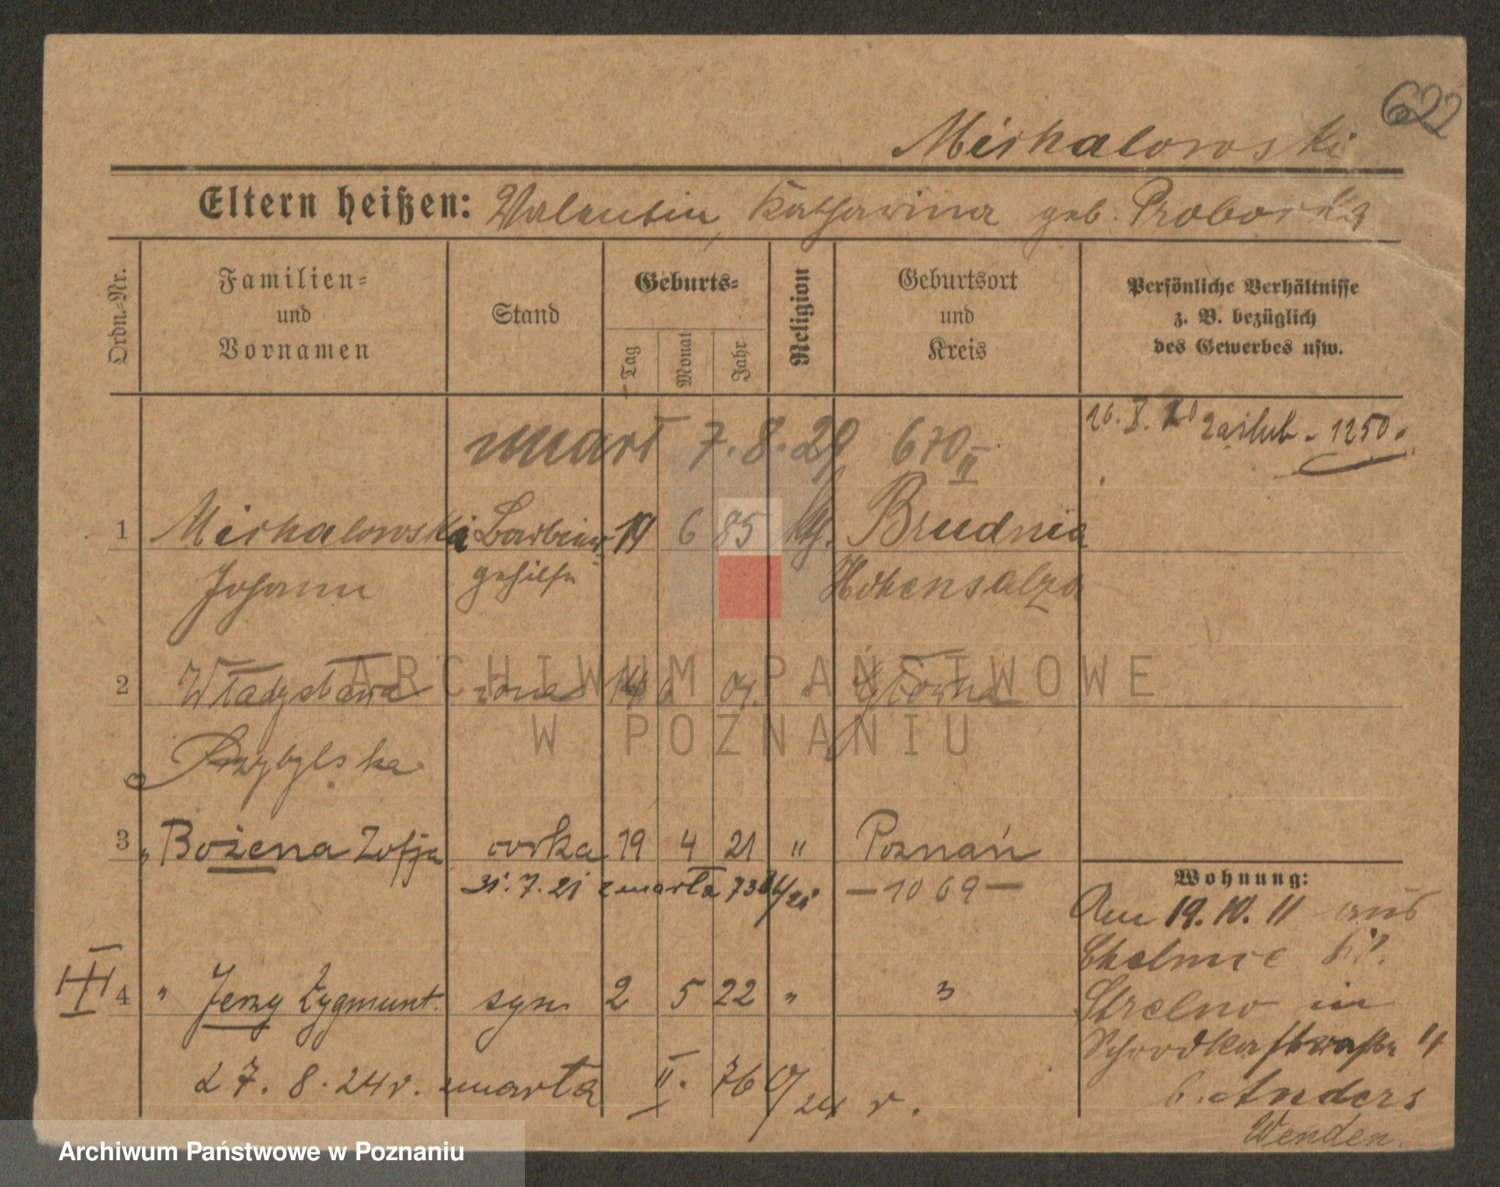 622
Michalowski
Eltern heißen: Valentin, Katharina geb. Proborska
Ordn.-Nr.
Familien- und Vornamen
Stand
Geburts-
Tag
Monat
Jahr
Religion
Geburtsort und Kreis
Persönliche Verhältnisse z. B. bezüglich des Gewerbes usw.
zmarł 7.8.29 670 II
zaślub. 1250.
1 Michalowski Barbier 19 6 85 kth. Brudnia
Johann gehilfe Hohensalza
2 Władysława żona 14 6 " Główna
Przybylska
3 " Bożena Zofja córka 19 4 21 " Poznań
31.7.21 zmarła —1069—
Wohnung:
Am 19.10.11 aus
Chelmce Kr.
Strelno in
Schrodkastraße 4
b. Anders
Wenden.
III 4 " Jerzy Zygmunt. syn 2 5 22 " "
d 7.8.24 r. zmarła II. 76 /24 r.
ARCHIWUM PAŃSTWOWE
W POZNANIU
Archiwum Państwowe w Poznaniu